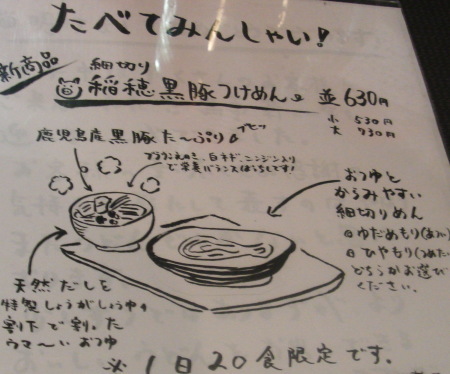 たべてみんしゃい!
新商品
細切り
稲穂黒豚つけめん 並630円
小 530円
大 730円
鹿児島産黒豚た〜ぷり ブヒッ
ブラウンえのき、白ネギ、ニンジン入り
で栄養バランスばっちしです!
おつゆと
からみやすい
細切りめん
ゆだめもり(あつい)
ひやもり(つめたい)
どちらかお選び
ください。
天然だしを
特製しょうがじょうゆの
割下で割った
ウマ〜いおつゆ
※1日20食限定です。